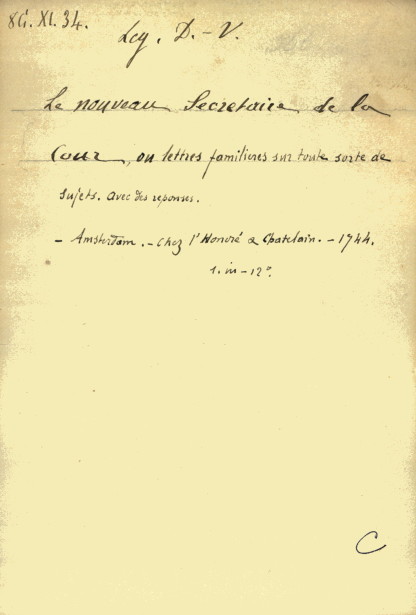 8G. XI. 34.
Leg. D.-V.
Le nouveau Secretaire de la
Cour, ou lettres familieres sur toute sorte de
sujets. avec des reponses.
- Amsterdam. - Chez l'Honoré & Chatelain. - 1744.
1. in-12°.
C